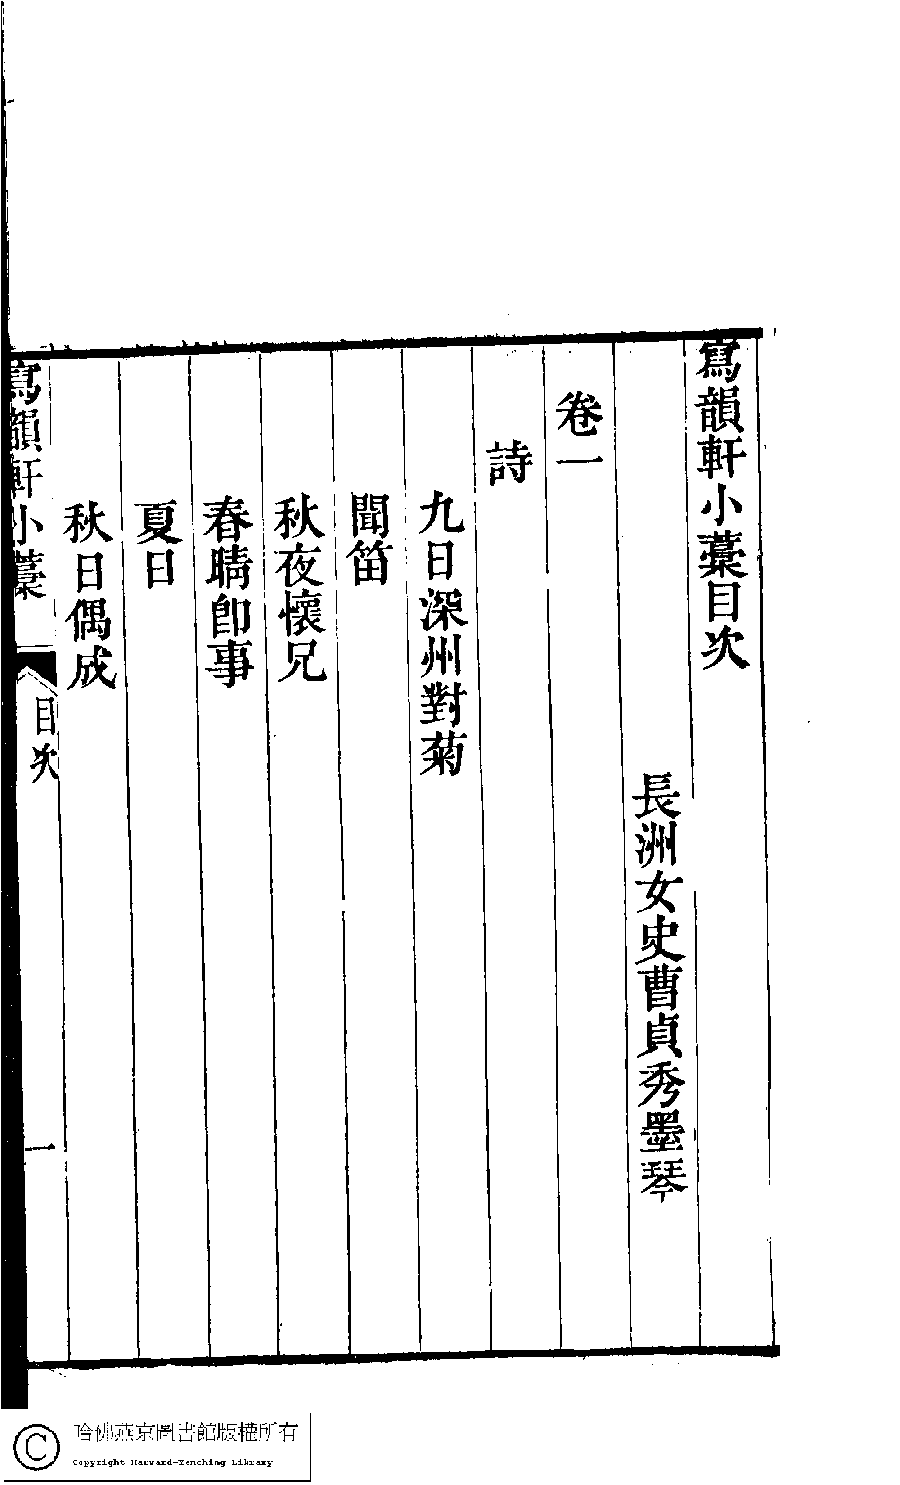 寫韻軒小藁目次
長洲女史曹貞秀墨琴
卷一
詩
九日深州對菊
聞笛
秋夜懷兄
春晴卽事
夏日
秋日偶成
寫韻軒小藁
目次
一
哈佛燕京圖書館版權所有
Copyright Harvard-Yenching Library